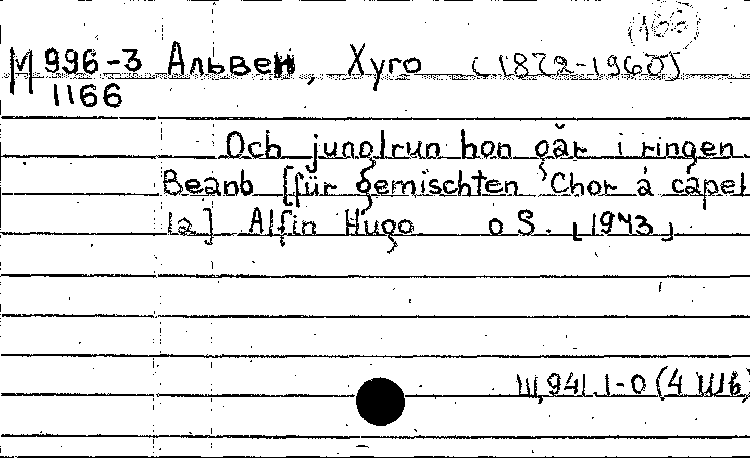 (166)
М 996-3 Альвен, Хуго (1872-1960)
1166
Och jungfrun hon går i ringen.
Bearb [für gemischten Chor a capel
la] Alfén Hugo o S. [1943]
Ш, 941.1-0 (4 Шв)